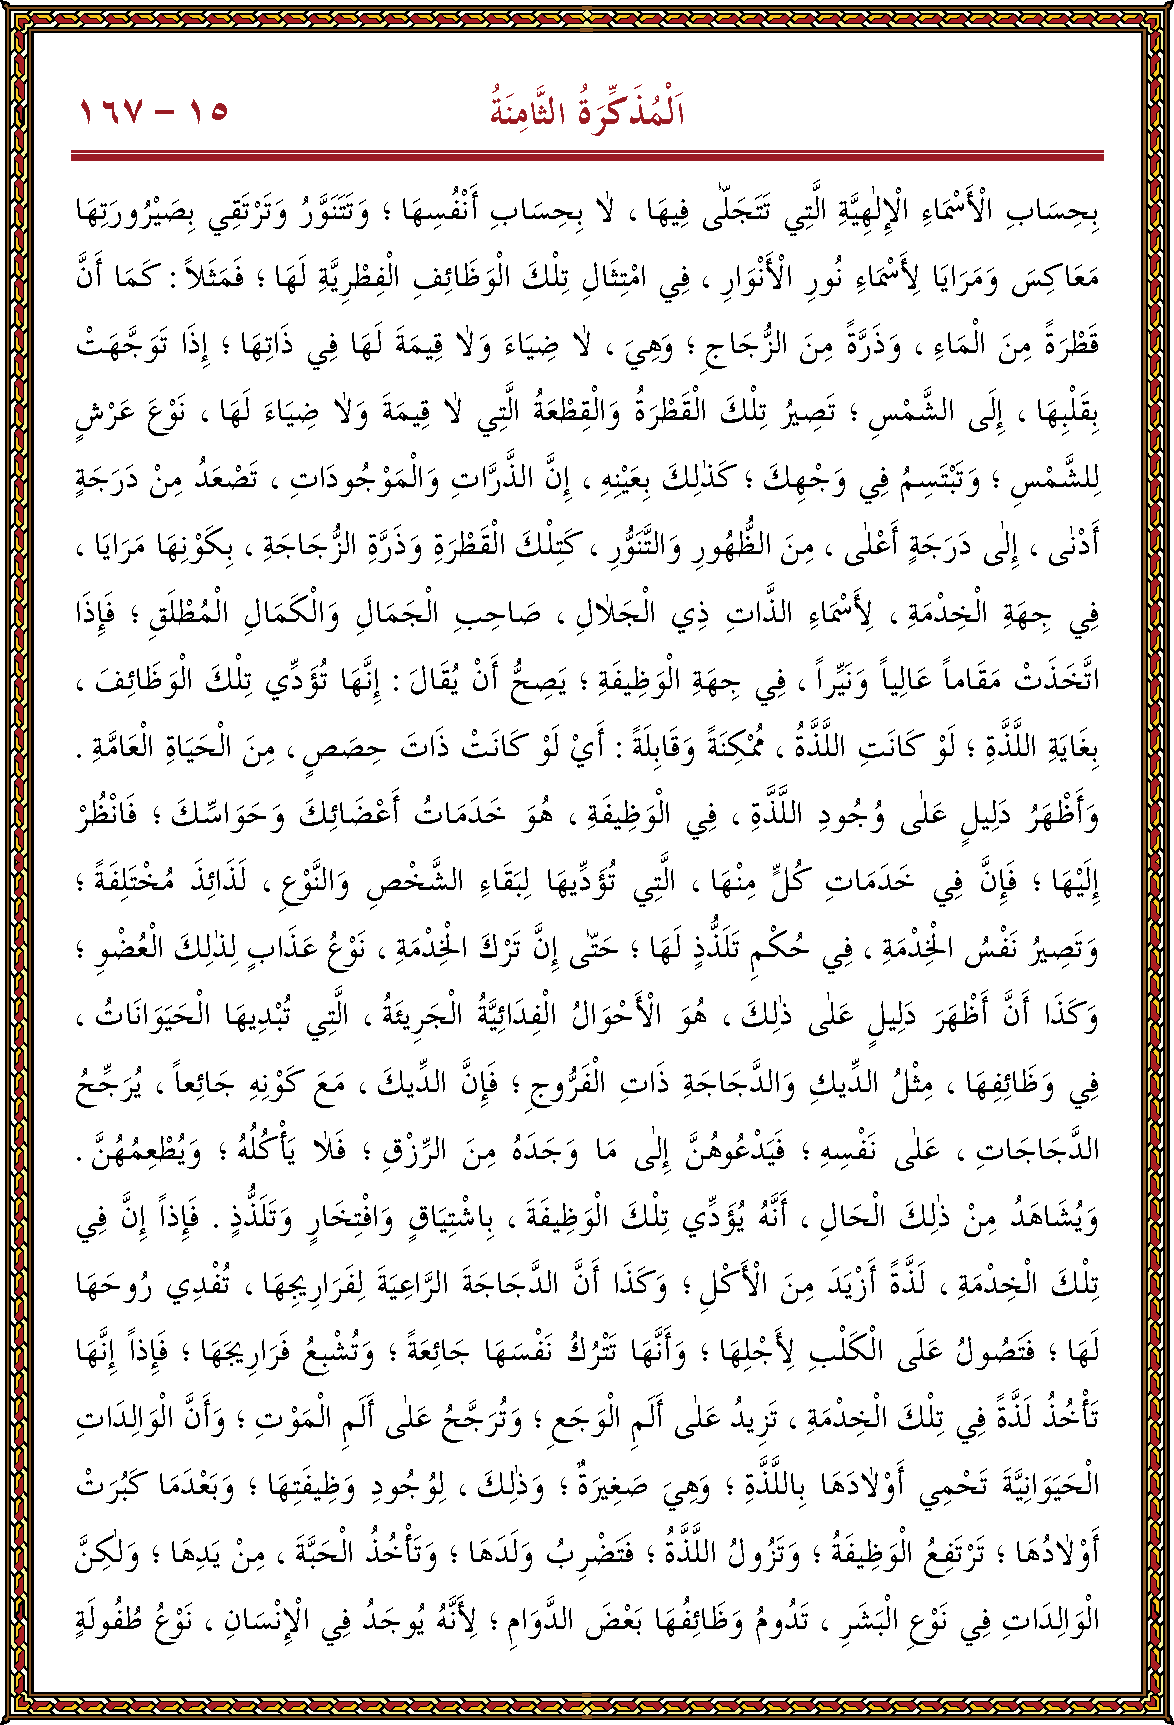 اَلْمُذَكِّرَةُ الثَّامِنَةُ ١٥ – ١٦٧
بِحِسَابِ الْأَسْمَاءِ الْإِلٰهِيَّةِ الَّتِي تَتَجَلّٰى فِيهَا ، لَا بِحِسَابِ أَنْفُسِهَا ؛ وَتَتَنَوَّرُ وَتَرْتَقِي بِصَيْرُورَتِهَا
مَعَاكِسَ وَمَرَايَا لِأَسْمَاءِ نُورِ الْأَنْوَارِ ، فِي امْتِثَالِ تِلْكَ الْوَظَائِفِ الْفِطْرِيَّةِ لَهَا ؛ فَمَثَلاً : كَمَا أَنَّ
قَطْرَةً مِنَ الْمَاءِ ، وَذَرَّةً مِنَ الزُّجَاجِ ؛ وَهِيَ ، لَا ضِيَاءَ وَلَا قِيمَةَ لَهَا فِي ذَاتِهَا ؛ إِذَا تَوَجَّهَتْ
بِقَلْبِهَا ، إِلَى الشَّمْسِ ؛ تَصِيرُ تِلْكَ الْقَطْرَةُ وَالْقِطْعَةُ الَّتِي لَا قِيمَةَ وَلَا ضِيَاءَ لَهَا ، نَوْعَ عَرْشٍ
لِلشَّمْسِ ؛ وَتَبْتَسِمُ فِي وَجْهِكَ ؛ كَذٰلِكَ بِعَيْنِهِ ، إِنَّ الذَّرَّاتِ وَالْمَوْجُودَاتِ ، تَصْعَدُ مِنْ دَرَجَةٍ
أَدْنٰى ، إِلٰى دَرَجَةٍ أَعْلٰى ، مِنَ الظُّهُورِ وَالتَّنَوُّرِ ، كَتِلْكَ الْقَطْرَةِ وَذَرَّةِ الزُّجَاجَةِ ، بِكَوْنِهَا مَرَايَا ،
فِي جِهَةِ الْخِدْمَةِ ، لِأَسْمَاءِ الذَّاتِ ذِي الْجَلَالِ ، صَاحِبِ الْجَمَالِ وَالْكَمَالِ الْمُطْلَقِ ؛ فَإِذَا
اتَّخَذَتْ مَقَاماً عَالِياً وَنَيِّراً ، فِي جِهَةِ الْوَظِيفَةِ ؛ يَصِحُّ أَنْ يُقَالَ : إِنَّهَا تُؤَدِّي تِلْكَ الْوَظَائِفَ ،
بِغَايَةِ اللَّذَّةِ ؛ لَوْ كَانَتِ اللَّذَّةُ ، مُمْكِنَةً وَقَابِلَةً : أَيْ لَوْ كَانَتْ ذَاتَ حِصَصٍ ، مِنَ الْحَيَاةِ الْعَامَّةِ .
وَأَظْهَرُ دَلِيلٍ عَلٰى وُجُودِ اللَّذَّةِ ، فِي الْوَظِيفَةِ ، هُوَ خَدَمَاتُ أَعْضَائِكَ وَحَوَاسِّكَ ؛ فَانْظُرْ
إِلَيْهَا ؛ فَإِنَّ فِي خَدَمَاتِ كُلٍّ مِنْهَا ، الَّتِي تُؤَدِّيهَا لِبَقَاءِ الشَّخْصِ وَالنَّوْعِ ، لَذَائِذَ مُخْتَلِفَةً ؛
وَتَصِيرُ نَفْسُ الْخِدْمَةِ ، فِي حُكْمِ تَلَذُّذٍ لَهَا ؛ حَتّٰى إِنَّ تَرْكَ الْخِدْمَةِ ، نَوْعُ عَذَابٍ لِذٰلِكَ الْعُضْوِ ؛
وَكَذَا أَنَّ أَظْهَرَ دَلِيلٍ عَلٰى ذٰلِكَ ، هُوَ الْأَحْوَالُ الْفِدَائِيَّةُ الْجَرِيئَةُ ، الَّتِي تُبْدِيهَا الْحَيَوَانَاتُ ،
فِي وَظَائِفِهَا ، مِثْلُ الدِّيكِ وَالدَّجَاجَةِ ذَاتِ الْفَرُّوجِ ؛ فَإِنَّ الدِّيكَ ، مَعَ كَوْنِهِ جَائِعاً ، يُرَجِّحُ
الدَّجَاجَاتِ ، عَلٰى نَفْسِهِ ؛ فَيَدْعُوهُنَّ إِلٰى مَا وَجَدَهُ مِنَ الرِّزْقِ ؛ فَلَا يَأْكُلُهُ ؛ وَيُطْعِمُهُنَّ .
وَيُشَاهَدُ مِنْ ذٰلِكَ الْحَالِ ، أَنَّهُ يُؤَدِّي تِلْكَ الْوَظِيفَةَ ، بِاشْتِيَاقٍ وَافْتِخَارٍ وَتَلَذُّذٍ . فَإِذاً إِنَّ فِي
تِلْكَ الْخِدْمَةِ ، لَذَّةً أَزْيَدَ مِنَ الْأَكْلِ ؛ وَكَذَا أَنَّ الدَّجَاجَةَ الرَّاعِيَةَ لِفَرَارِيجِهَا ، تُفْدِي رُوحَهَا
لَهَا ؛ فَتَصُولُ عَلَى الْكَلْبِ لِأَجْلِهَا ؛ وَأَنَّهَا تَتْرُكُ نَفْسَهَا جَائِعَةً ؛ وَتُشْبِعُ فَرَارِيجَهَا ؛ فَإِذاً إِنَّهَا
تَأْخُذُ لَذَّةً فِي تِلْكَ الْخِدْمَةِ ، تَزِيدُ عَلٰى أَلَمِ الْوَجَعِ ؛ وَتُرَجَّحُ عَلٰى أَلَمِ الْمَوْتِ ؛ وَأَنَّ الْوَالِدَاتِ
الْحَيَوَانِيَّةَ تَحْمِي أَوْلَادَهَا بِاللَّذَّةِ ؛ وَهِيَ صَغِيرَةٌ ؛ وَذٰلِكَ ، لِوُجُودِ وَظِيفَتِهَا ؛ وَبَعْدَمَا كَبُرَتْ
أَوْلَادُهَا ؛ تَرْتَفِعُ الْوَظِيفَةُ ؛ وَتَزُولُ اللَّذَّةُ ؛ فَتَضْرِبُ وَلَدَهَا ؛ وَتَأْخُذُ الْحَبَّةَ ، مِنْ يَدِهَا ؛ وَلٰكِنَّ
الْوَالِدَاتِ فِي نَوْعِ الْبَشَرِ ، تَدُومُ وَظَائِفُهَا بَعْضَ الدَّوَامِ ؛ لِأَنَّهُ يُوجَدُ فِي الْإِنْسَانِ ، نَوْعُ طُفُولَةٍ